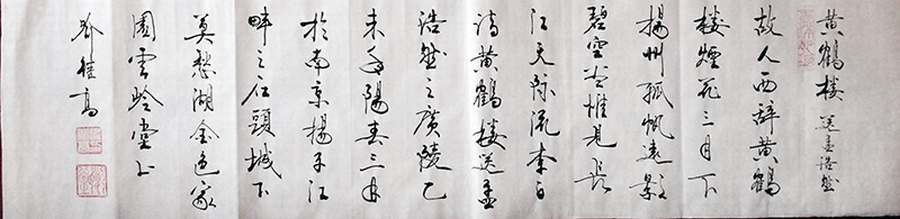 黄鶴楼 送孟浩然
故人西辞黄鶴
楼煙花三月下
揚州孤帆遠影
碧空尽惟见長
江天际流李白
詩黄鶴楼送孟
浩然之廣陵乙
未年陽春三月
於南京揚子江
畔之石頭城下
莫愁湖金色家
園雲岭堂上
高